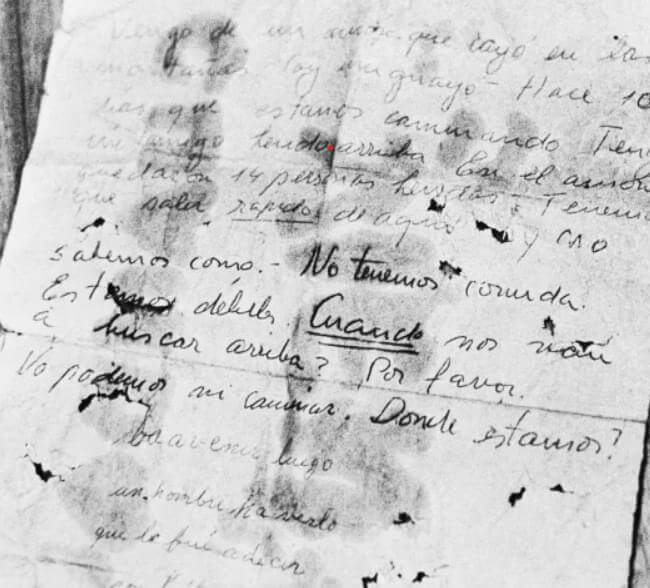 Vengo de un avión que cayó en las
montañas. Soy uruguayo. Hace 10
días que estamos caminando. Ten
un amigo herido arriba. En el avión
quedaron 14 personas heridas. Tenemo
que salir rápido de aquí y no
sabemos como.- No tenemos comida.
Estamos débiles. Cuando nos van
a buscar arriba? Por favor.
No podemos ni caminar. Donde estamos?
va a venir luego
un hombre a verlo
que le fué a decir